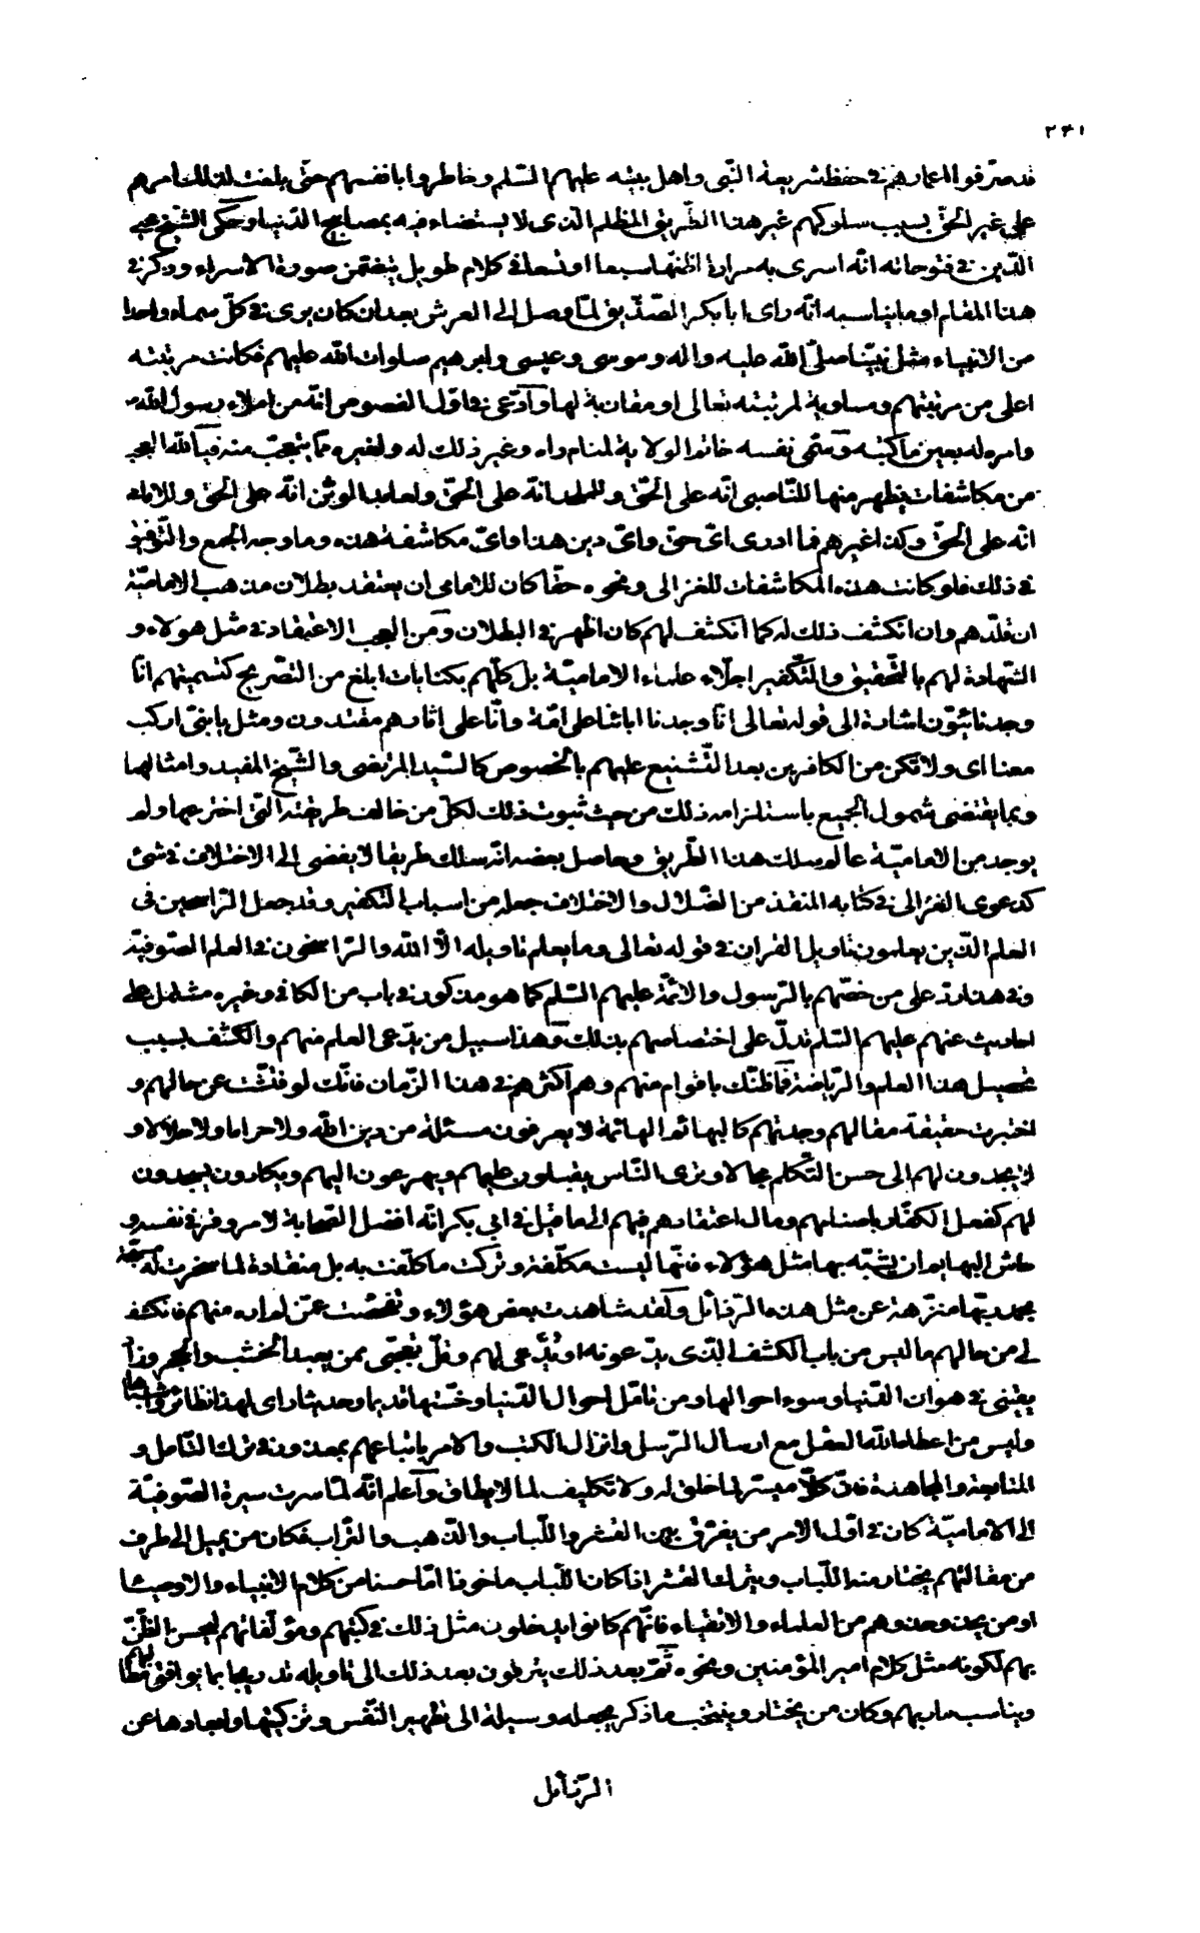 ٢٤١
قد صرفوا اعمارهم فى حفظ شريعة النبى واهل بيته عليهم السّلم وخاطروا بانفسهم حتّى بلغت لذلك امرهم
على غير الحقّ بسبب سلوكهم غير هذا الطّريق المظلم الّذى لا يستضاء فيه بمصابيح الدّنيا وحكى الشّيخ محيى
الدّين فى فتوحاته انّه اسرى به مرارا اظنّها سبعا او تسعا فى كلام طويل يتضمّن صورة الاسراء وذكر فى
هذا المقام او ما يناسبه انّه راى ابا بكر الصّدّيق لمّا وصل الى العرش بعد ان كان يرى فى كلّ سماء واحدا
من الانبياء مثل نبيّنا صلّى الله عليه واله وموسى وعيسى وابرهيم صلوات الله عليهم فكانت مرتبته
اعلى من مرتبتهم ومساوية لمرتبته تعالى او مقاربة لها وادّعى فى اوّل الفصوص انّه من املاء رسول الله ص
وامره له بعين ما كتبه وسمّى نفسه خاتم الولاية لمنام راه وغير ذلك له ولغيره ممّا يتعجّب منه فيا لله العجب
من مكاشفات يظهر منها للنّاصبى انّه على الحقّ وللملحد انّه على الحقّ ولعابد الوثن انّه على الحقّ وللامامى
انّه على الحقّ وكذا غيرهم فما ادرى اىّ حقّ واىّ دين هذا واىّ مكاشفة هذه وما وجه الجمع والتّوفيق
فى ذلك فلو كانت هذه المكاشفات للغزالى ونحوه حقّا كان للامامى ان يعتقد بطلان مذهب الاماميّة
ان قلّدهم وان انكشف ذلك له كما انكشف لهم كان اظهر فى البطلان ومن العجب الاعتقاد فى مثل هولاء و
الشّهادة لهم بالتّحقيق والتّكفير اجلّاء علماء الاماميّة بل كلّهم بكنايات ابلغ من التّصريح كتسميتهم انّا
وجدنائيّون اشارة الى قوله تعالى انّا وجدنا ابائنا على امّة وانّا على اثارهم مقتدون ومثل يا بنىّ اركب
معنا اى ولا تكن من الكافرين بعد التّشنيع عليهم بالخصوص كالسّيد المرتضى والشّيخ المفيد وامثالهما
وبما يقتضى شمول الجميع باستلزامه ذلك من حيث ثبوت ذلك لكلّ من خالف طريقته الّتى اخترعها ولم
يوجد من الاماميّة عالم سلك هذا الطّريق وحاصل بعضه انّه سلك طريقا لا يفضى الى الاختلاف فى شئ
كدعوى الغزالى فى كتابه المنقذ من الضّلال والاختلاف جعله من اسباب التكفير وقد جعل الرّاسخين فى
العلم الّذين يعلمون تاويل القران فى قوله تعالى وما يعلم تاويله الّا الله والرّاسخون فى العلم الصّوفيّة
وفى هذا ردّ على من خصّهم بالرّسول والائمّة عليهم السّلم كما هو مذكور فى باب من الكافى وغيره مشتمل على
احاديث عنهم عليهم السّلم تدلّ على اختصاصهم بذلك وهذا سبيل من يدّعى العلم منهم والكشف بسبب
تحصيل هذا العلم والرّياضة فما ظنّك باقوام منهم وهم اكثرهم فى هذا الزّمان فانّك لو فتّشت عن حالهم و
اختبرت حقيقة مقالهم وجدتهم كالبهائم الهائمة لا يعرفون مسئلة من دين الله ولا حراما ولا حلالا و
لا يجدون لهم الى حسن التّكلّم مجالا وترى النّاس يقبلون عليهم ويهرعون اليهم ويكادون يسجدون
لهم كفعل الكفّار باصنامهم ومال اعتقادهم فيهم الى ما قيل فى ابى بكر انّه افضل الصّحابة لامر وقر فى نفسه و
حاش البهايم ان يتشبّه بها مثل هؤلاء فانّها ليست مكلّفة وتركت ما كلّفت به بل منقادة لما سخرت له مسبّحة
بحمد ربّها منزّهة عن مثل هذه الرّذائل ولقد شاهدت بعض هؤلاء وتفحّصت عمّن لم اره منهم فانكشف
لى من حالهم ما ليس من باب الكشف الّذى يدّعونه او يُدَّعى لهم وقلّ تعجّبى ممن يعبد الخشب والحجر وزاد
يقينى فى هوان الدّنيا وسوء احوالها ومن تامّل احوال الدّنيا وخسّتها قديما وحديثا راى لهذا نظائر واشباها
وليس من اعطاه الله العقل مع ارسال الرّسل وانزال الكتب والامر باتباعهم بمعذور فى ترك التّامل و
المتابعة والمجاهدة فانّ كلّا ميسّر لما خلق له ولا تكليف لما لا يطاق واعلم انّه لمّا سرت سيرة الصّوفيّة
الى الاماميّة كان فى اوّل الامر من يفرّق بين القشر واللّباب والذّهب والتّراب فكان من يميل الى طرف
من مقالتهم يختار منه اللّباب ويترك القشر اذا كان اللّباب ماخوذا امّا حسنا من كلام الانبياء والاوصياء
او من يحذو حذوهم من العلماء والاتقياء فانّهم كانوا يدخلون مثل ذلك فى كتبهم ومؤلّفاتهم ليحسن الظّنّ
بهم لكونه مثل كلام امير المؤمنين ونحوه ثمّ بعد ذلك يتركون بعد ذلك الى تاويله تدريجا بما يوافق مطالبهم
ويناسب ماربهم وكان من يختار وينتخب ما ذكر يجعله وسيلة الى تطهير النّفس وتزكيتها وابعادها عن
الرّذائل